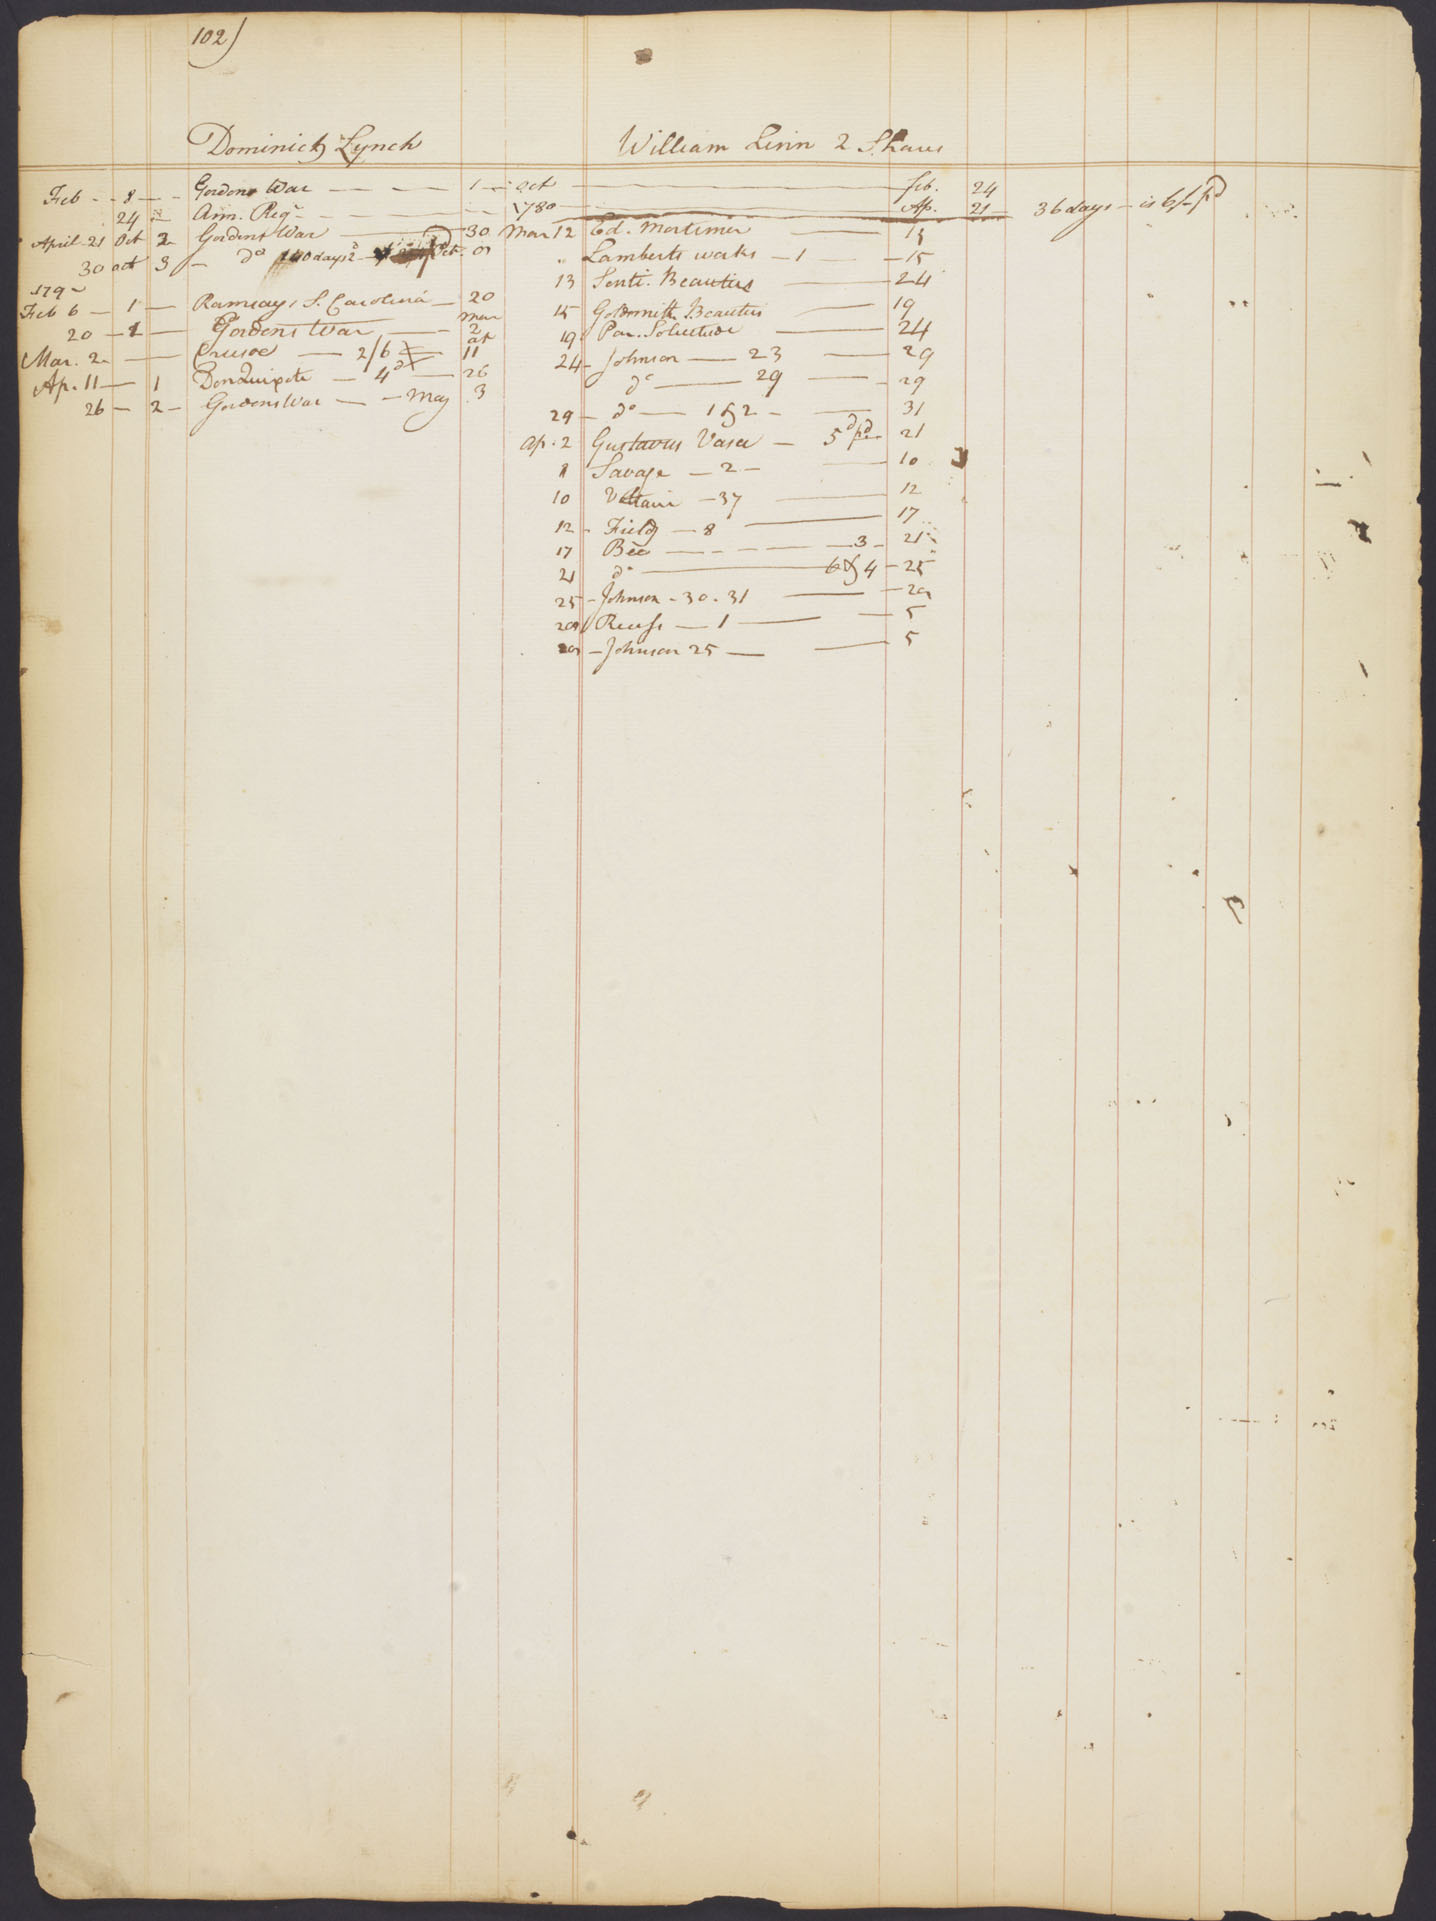 102)
Dominick Lynch
Feb - - 8 - - Gordons War - - - 1
24 - Ann. Regr - - -
April 21 Oct 2 Gordons War - 30
30 oct 3 - do 140 days
179
Feb 6 - 1 - Ramsays S. Carolina - 20
mar
20 - 1 - Gordons War - - 2
ap
Mar. 2 - Crusoe - 2/6 - 11
Ap. 11 - 1 Don Quixote - 4d - 26
26 - 2 - Gordons War - - May 3
William Linn 2 Shares
Oct - feb. 24
1789 - Ap. 21 - 36 days - is 6/ pd
Mar 12 Ed. Mortimer - 15
" Lamberts works - 1 - 15
13 Senti. Beauties - 24
15 Goldsmith Beauties - 19
19 Par. Solitude - 24
24 - Johnson - 23 - 29
do - 29 - 29
29 - do - 1 & 2 - 31
Ap. 2 Gustavus Vasa - 5d pd 21
8 Savage - 2 - 10
10 Voltair - 37 - 12
12 - Fieldg - 8 - 17
17 Bee - - - - 3 - 21
21 do - 4 - 25
25 - Johnson - 30. 31 - 29
29 Recess - 1 - 5
29 - Johnson 25 - 5